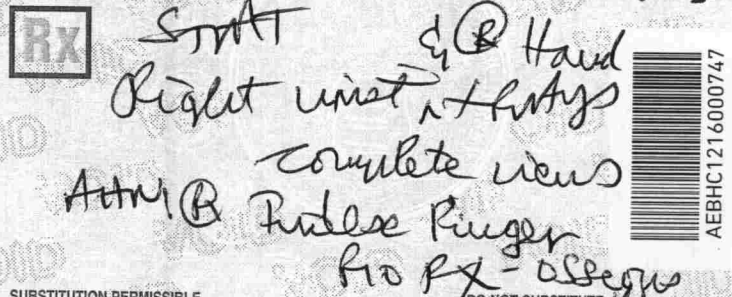 Rx
STAT & Ⓡ Hand
Right wrist ^ Xrays
complete views
Attn Ⓡ Index Finger
R/O FX - osseous
AEBHC1216000747
SUBSTITUTION PERMISSIBLE
DO NOT SUBSTITUTE